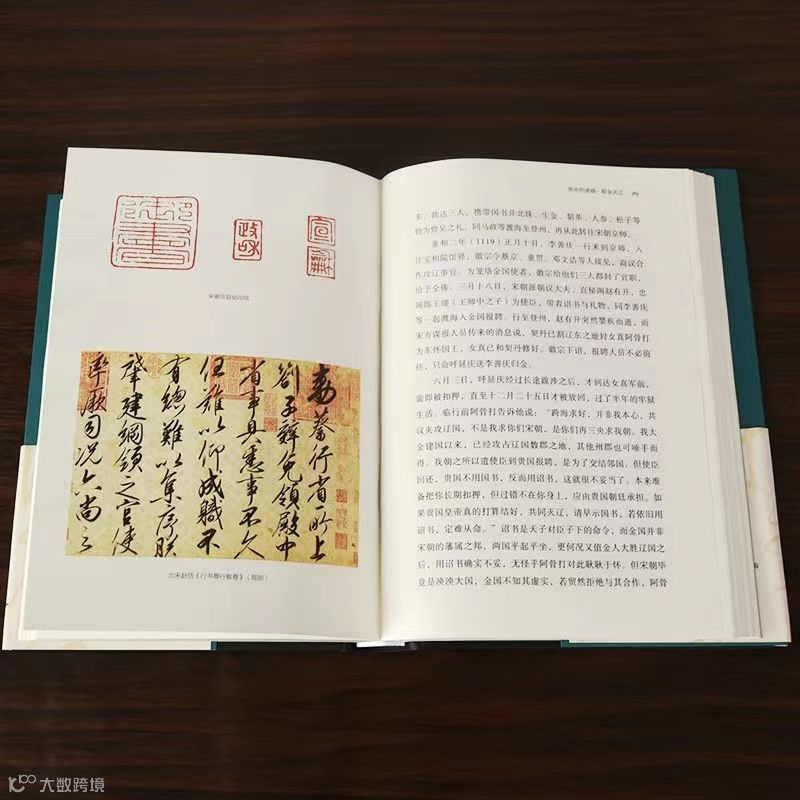 政和
宣和
宋徽宗赵佶印信
蔡行省所上
劄子辞免领殿中
省事具悉事不久
任难以仰成职不
有总难以集序朕
肇建纲领之官使
率厥司况六尚之
北宋赵佶《行书蔡行敕卷》（局部）
致命的诱惑：联金灭辽
多、勃达三人，携带国书并北珠、生金、貂革、人参、松子等
物为贽见之礼，同马政等渡海至登州，再从此转往宋朝京师。
重和二年（1119）正月十日，李善庆一行来到京师，入
住宝相院馆驿，徽宗令蔡京、童贯、邓文诰等人接见，商议合
作攻辽事宜。为笼络金国使者，徽宗给他们三人都封了官职，
给予全俸。三月十八日，宋朝派朝议大夫、直秘阁赵有开，忠
翊郎王瓌（王师中之子）为使臣，带着诏书与礼物，同李善庆
等一起渡海入金国报聘。行至登州，赵有开突然婴疾而逝，而
宋方谍报人员传来的消息说，契丹已割辽东之地封女真阿骨打
为东怀国王，女真已和契丹修好。徽宗下诏，报聘人员不必前
往，只命呼延庆送李善庆归金。
六月三日，呼延庆经过长途跋涉之后，才到达女真军前，
旋即被扣押，直至十二月二十五日才被放回，过了半年的牢狱
生活。临行前阿骨打告诉他说：“跨海求好，并非我本心，共
议夹攻辽国，不是我求你们宋朝，是你们再三央求我朝。我大
金建国以来，已经攻占辽国数郡之地，其他州郡也可唾手而
得。我朝之所以遣使到贵国报聘，是为了交结邻国。但使臣
回还，贵国不用国书，反而用诏书，这就很不妥当了。本来准
备把你长期扣押，但过错不在你身上，应由贵国朝廷承担。如
果贵国皇帝真的打算结好，共同灭辽，请早示国书，若依旧用
诏书，定难从命。”诏书是天子对臣子下的命令，而金国并非
宋朝的藩属之邦，两国平起平坐，更何况又值金人大胜辽国之
后，用诏书确实不妥，无怪乎阿骨打对此耿耿于怀。但宋朝毕
竟是泱泱大国，金国不知其虚实，若贸然拒绝与其合作，阿骨
大数跨境